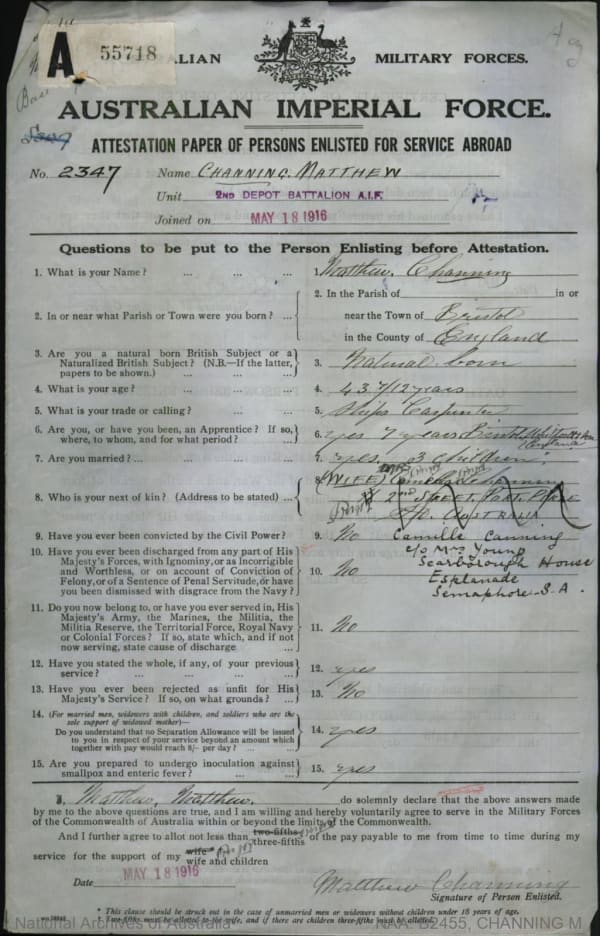 A 55718
ALIAN MILITARY FORCES.
AUSTRALIAN IMPERIAL FORCE.
ATTESTATION PAPER OF PERSONS ENLISTED FOR SERVICE ABROAD
No. 2347 Name CHANNING, MATTHEW
Unit 2ND DEPOT BATTALION A.I.F.
Joined on MAY 18 1916
Questions to be put to the Person Enlisting before Attestation.
1. What is your Name? ... ... ... 1. Matthew, Channing
2. In or near what Parish or Town were you born? ... 2. In the Parish of in or
near the Town of Bristol
in the County of England
3. Are you a natural born British Subject or a
Naturalized British Subject? (N.B.—If the latter,
papers to be shown.) ... ... 3. Natural born
4. What is your age? ... ... ... 4. 43 7/12 years
5. What is your trade or calling? ... ... 5. Ships Carpenter
6. Are you, or have you been, an Apprentice? If so,
where, to whom, and for what period? ... 6. yes 7 years Bristol England
7. Are you married? ... ... ... 7. yes, 3 children
8. Who is your next of kin? (Address to be stated) ... 8. (WIFE) Channing
2nd STREET, PORT PIRIE
AUSTRALIA
9. Have you ever been convicted by the Civil Power? 9. No
Camille Canning
c/o Mrs Young
Scarborough House
Esplanade
Semaphore S.A.
10. Have you ever been discharged from any part of His
Majesty's Forces, with Ignominy, or as Incorrigible
and Worthless, or on account of Conviction of
Felony, or of a Sentence of Penal Servitude, or have
you been dismissed with disgrace from the Navy? 10. No
11. Do you now belong to, or have you ever served in, His
Majesty's Army, the Marines, the Militia, the
Militia Reserve, the Territorial Force, Royal Navy
or Colonial Forces? If so, state which, and if not
now serving, state cause of discharge 11. No
12. Have you stated the whole, if any, of your previous
service? ... ... ... ... 12. yes
13. Have you ever been rejected as unfit for His
Majesty's Service? If so, on what grounds? ... 13. No
14. (For married men, widowers with children, and soldiers who are the
sole support of widowed mother)—
Do you understand that no Separation Allowance will be issued
to you in respect of your service beyond an amount which
together with pay would reach 8/- per day? ... ... 14. yes
15. Are you prepared to undergo inoculation against
smallpox and enteric fever? ... ... 15. yes
I, Matthew, Matthew, do solemnly declare that the above answers made
by me to the above questions are true, and I am willing and hereby voluntarily agree to serve in the Military Forces
of the Commonwealth of Australia within or beyond the limits of the Commonwealth.
And I further agree to allot not less than two-fifths
three-fifths of the pay payable to me from time to time during my
service for the support of my wife
wife and children
Date MAY 18 1916
Matthew Channing
Signature of Person Enlisted.
* This clause should be struck out in the case of unmarried men or widowers without children under 18 years of age.
† Two-fifths must be allotted to the wife, and if there are children three-fifths must be allotted.
National Archives of Australia NAA: B2455, CHANNING M